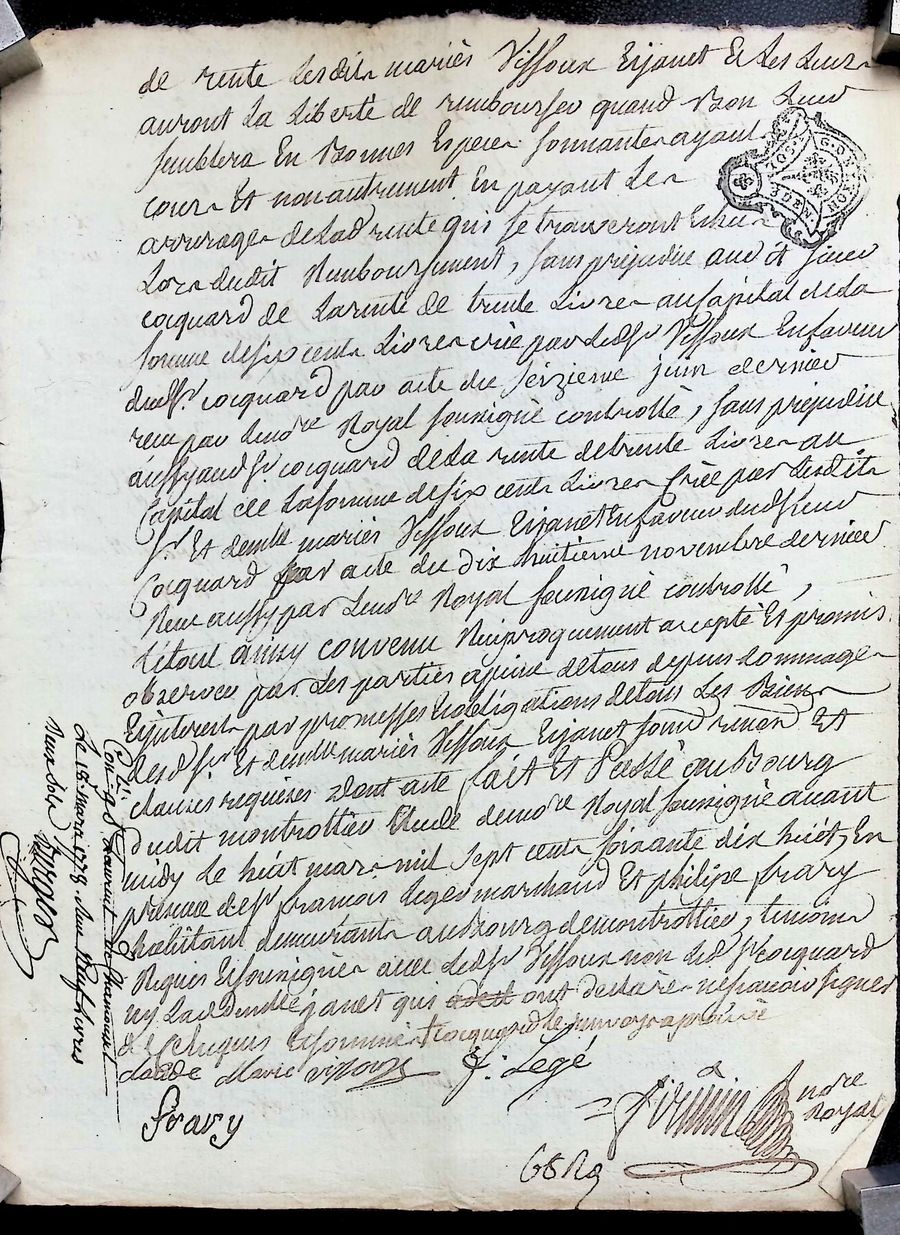 de rente lesdits mariés Vissoux Et janet Et les Leurs
auront La Liberté de rembourser quand Bon Leur
semblera En Bonnes Especes sonnantes ayant
cours Et non autrement En payant Les
arrerages de Lad rente qui se trouveront Echus
Lors dudit Remboursement, sans prejudice audit sieur
cocquard de La rente de trente Livres au Capital de la
somme de six cents Livres crée par Ledsr Vissoux En faveur
dudsr. cocquard par acte du seizieme juin dernier
recu par Le nore Royal soussigné controllé, sans prejudice
aussy aud sr cocquard de la rente de trente Livres au
Capital de La somme de six cents Livres Crée par Lesdits
sr. Et demlle mariés Vissoux Et janet En faveur dud sieur
Cocquard par acte du dix huitieme novembre dernier
Recu aussy par Le nore Royal soussigné controllé,
Le tout ainsy convenu Reciproquement accepté Et promis
observer par Les parties a peine de tous depens dommages
Et interets par promesses Et obligations de tous Les Biens
desdsr Et demlle mariés Vissoux Et janet soum renon Et
clauses requises dont acte fait Et Passé au Bourg
dudit montrottier Etude de nore Royal soussigné avant
midy Le huit mars mil sept cents soixante dix huit, En
presence de sr francois Leger marchand Et philipe frary
habitant demeurants au Bourg de montrottier, temoins
Requis Et soussignés avec Ledsr Vissoux non Led sr Cocquard
ny La d demlle janet qui ont declaré ne scavoir signer
de ce Enquis Et sommés
Marie vissoux f: Legé
frary
nore
Royal
G.ON.
LYON
SOL
DEN
Le 18. mars 1778. Recu